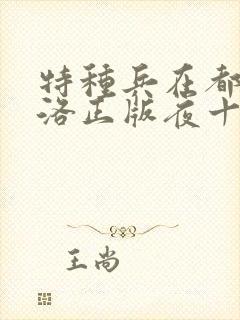 特種兵在都
洛正版夜十
王尚